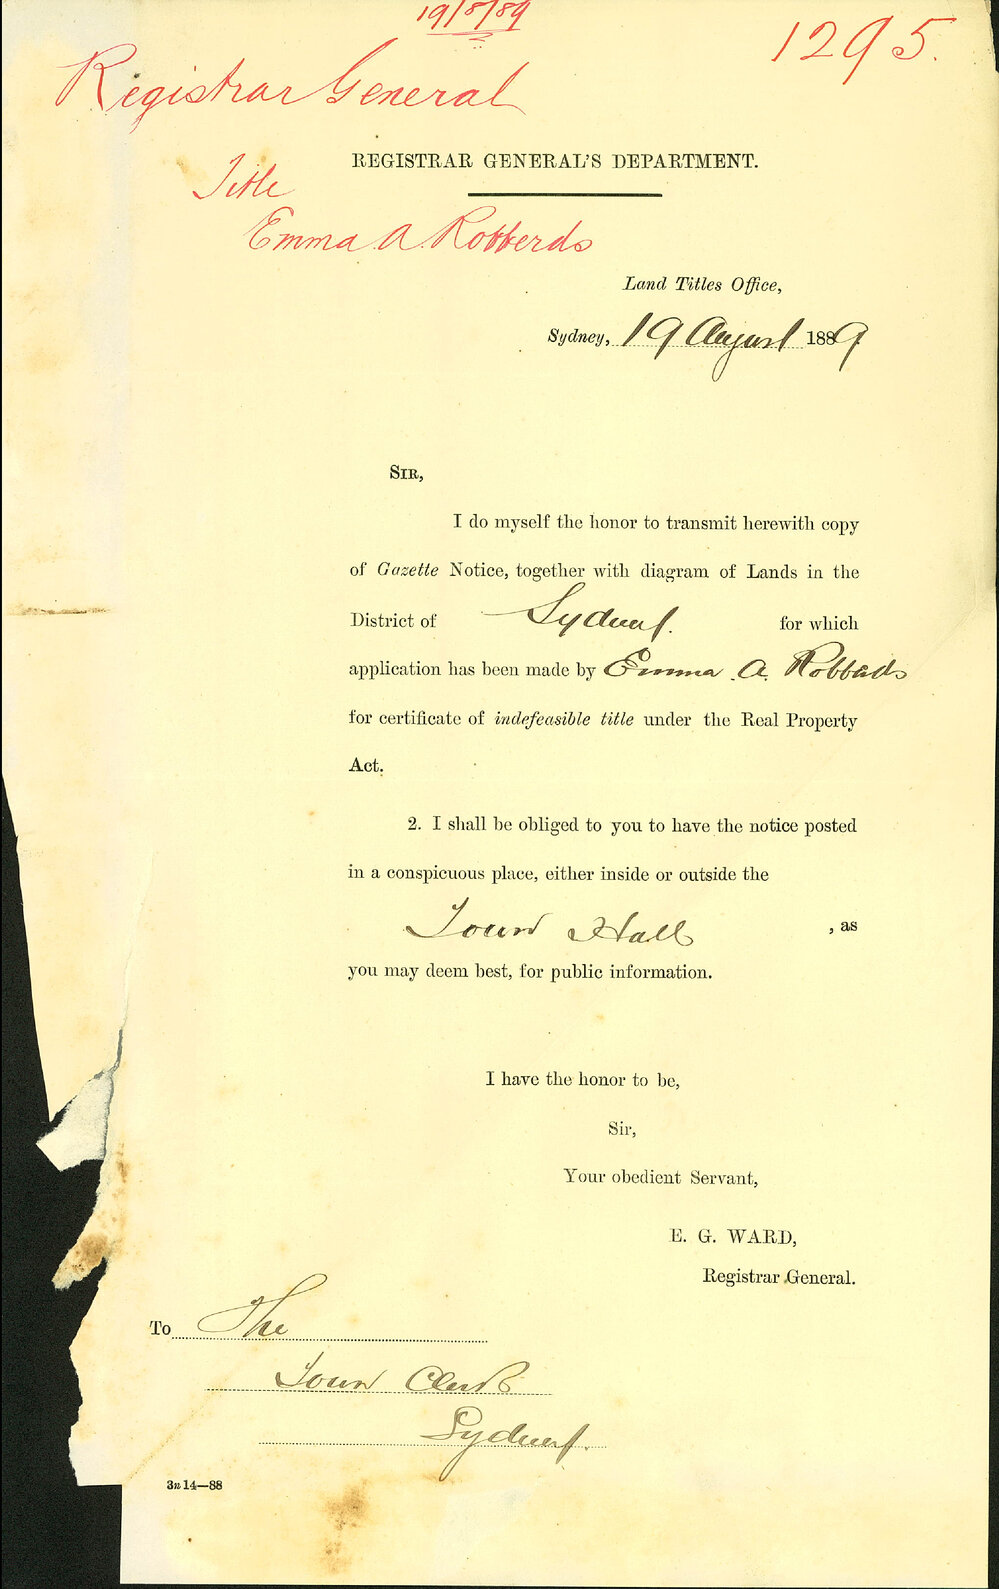 19/8/89
1295.
Registrar General
REGISTRAR GENERAL'S DEPARTMENT.
Title
Emma A. Robberds
Land Titles Office,
Sydney, 19 August 1889
SIR,
I do myself the honor to transmit herewith copy
of Gazette Notice, together with diagram of Lands in the
District of Sydney. for which
application has been made by Emma A. Robberds
for certificate of indefeasible title under the Real Property
Act.
2. I shall be obliged to you to have the notice posted
in a conspicuous place, either inside or outside the
Town Hall , as
you may deem best, for public information.
I have the honor to be,
Sir,
Your obedient Servant,
E. G. WARD,
Registrar General.
To The
Town Clerk
Sydney.
3n 14—88